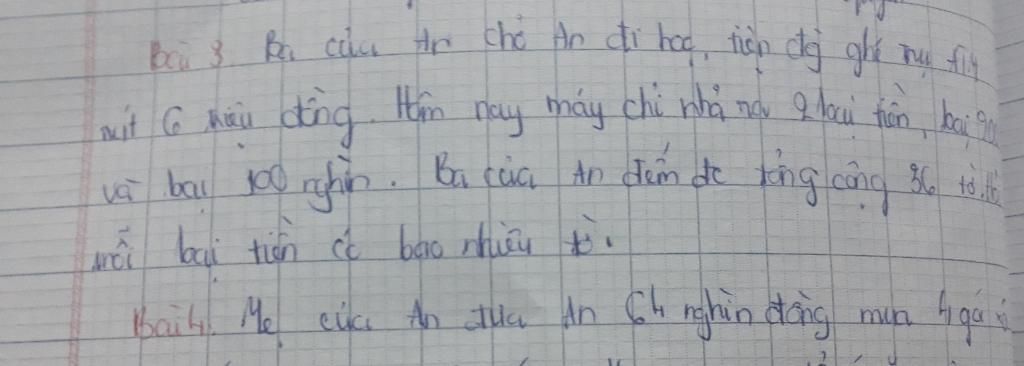 Bài 3. Ba của An chở An đi học, tiện đg ghé
rút 6 triệu đồng. Hôm nay máy chỉ nhả ra 2 loại tiền, loại
và loại 100 nghìn. Ba của An đếm đc tổng cộng 36 tờ.
mỗi loại tiền có bao nhiêu tờ.
Bài 4. Mẹ của An đưa An 64 nghìn đồng mua 4 gói